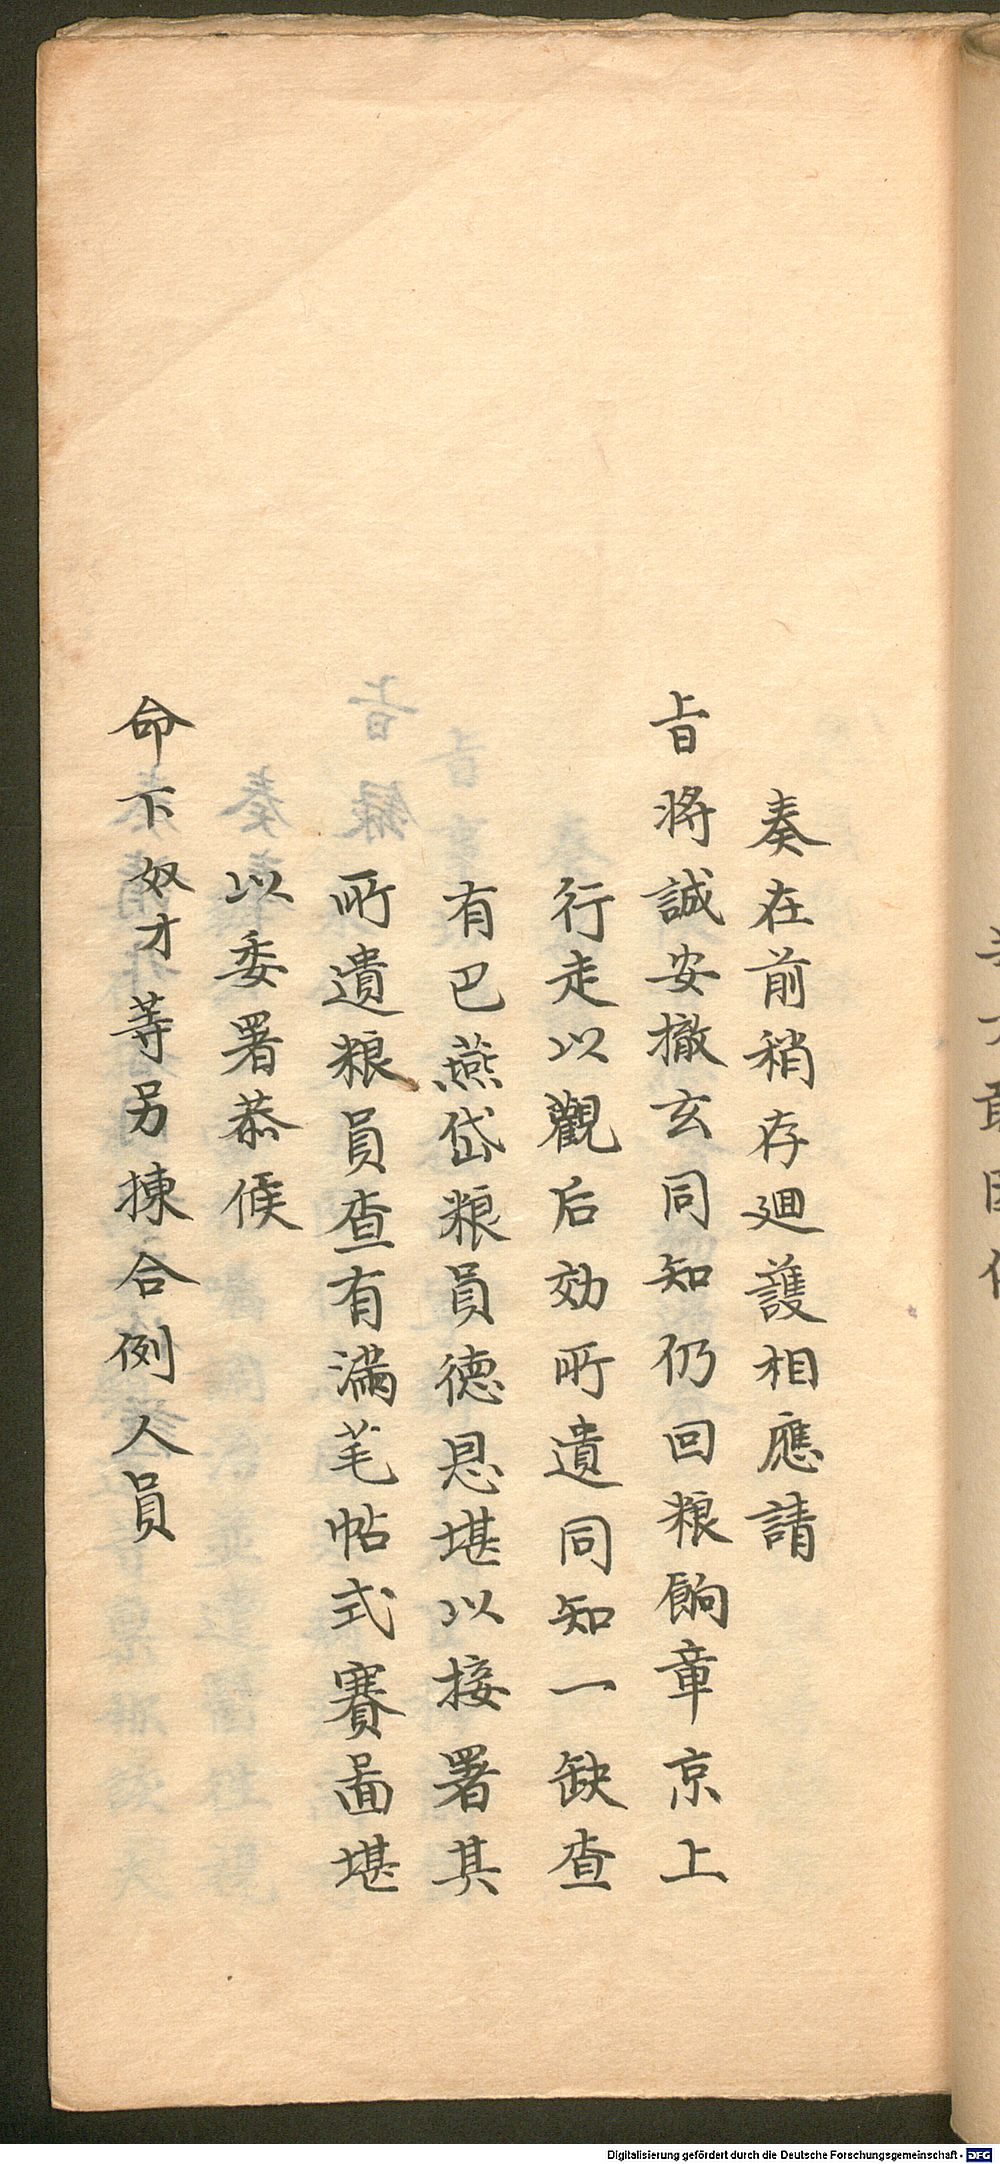 奏在前稍存廻護相應請
旨將誠安撤去同知仍回粮餉章京上
行走以觀后効所遺同知一缺查
有巴燕岱粮員德恩堪以接署其
所遺粮員查有滿茏帖式賽啚堪
以委署恭候
命下奴才等另揀合例人員
Digitalisierung gefördert durch die Deutsche Forschungsgemeinschaft - DFG